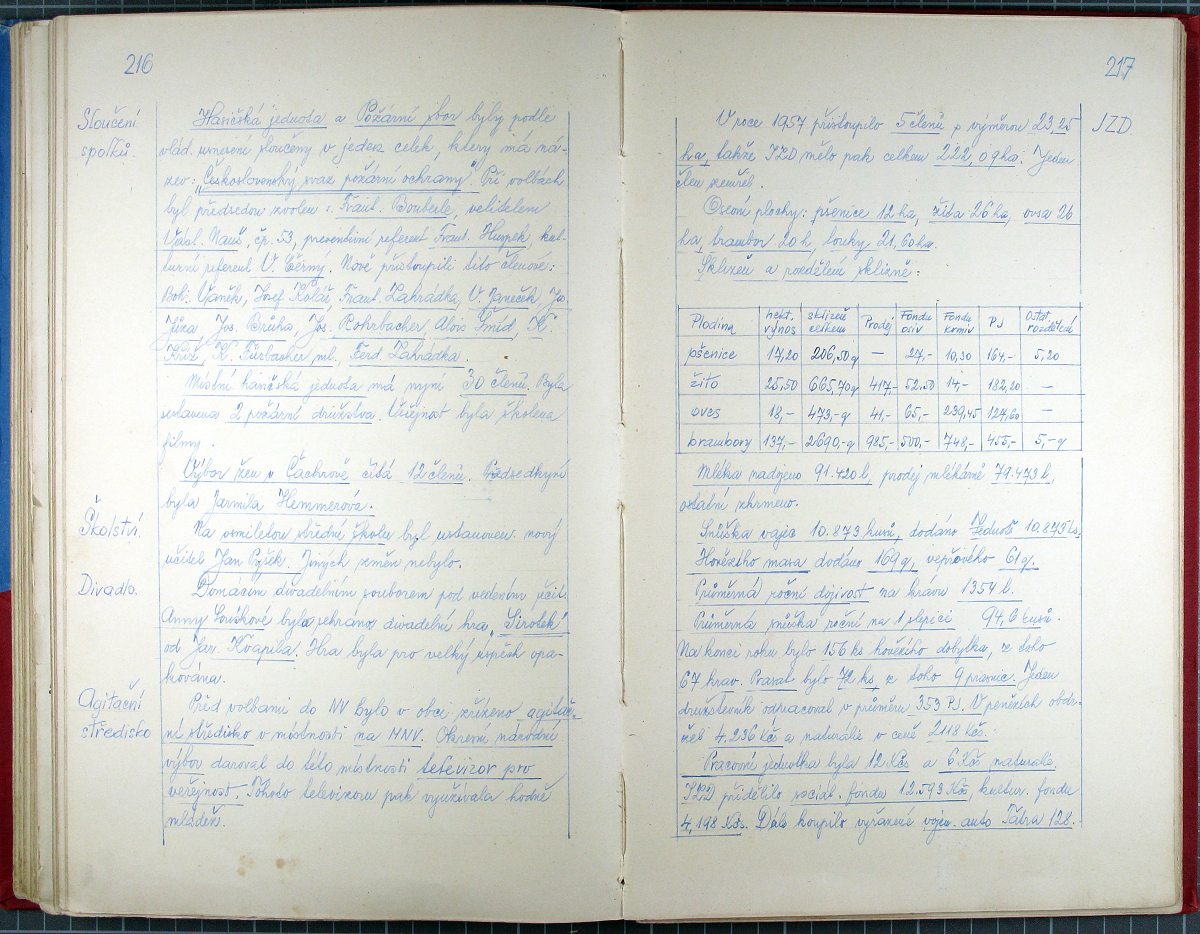 216
Sloučení
spolků.
Hasičská jednota a Požární sbor byly podle
vlád. usnesení sloučeny v jeden celek, který má ná-
zev: "Československý svaz požární ochrany". Při volbách
byl předsedou zvolen: Frant. Bouberle, velitelem
Václ. Nauš, čp. 53, preventivní referent Frant. Huspek, kul-
turní referent V. Černý. Nově přistoupili tito členové:
Boh. Vaněk, Josef Kolář, Frant. Zahrádka, V. Janeček, Jos.
Jůza, Jos. Brůha, Jos. Rohrbacher, Alois Šmíd, K.
Kříž, K. Fürbacher ml., Ferd. Zahrádka.
Místní hasičská jednota má nyní 30 členů. Byla
sestavena 2 požární družstva. Veřejnost byla školena
filmy.
Výbor žen v Čachrově čítá 12 členů. Předsedkyní
byla Jarmila Hemmerová.
Školství.
Na osmiletou střední školu byl ustanoven nový
učitel Jan Pyšek. Jiných změn nebylo.
Divadlo.
Domácím divadelním souborem pod vedením učit.
Anny Souškové byla sehrána divadelní hra "Sirotek"
od Jar. Kvapila. Hra byla pro velký úspěch opa-
kována.
Agitační
středisko
Před volbami do NV bylo v obci zřízeno agitač-
ní středisko v místnosti na MNV. Okresní národní
výbor daroval do této místnosti televizor pro
veřejnost. Tohoto televizoru pak využívala hodně
mládež.
217
JZD
V roce 1957 přistoupilo 5 členů s výměrou 23,25
ha, takže JZD mělo pak celkem 222,09 ha. Jeden
člen zemřel.
Osevní plochy: pšenice 12 ha, žita 26 ha, ovsa 26
ha, brambor 20 h, louky 21,60 ha.
Sklizeň a rozdělení sklizně:
Plodina hekt. výnos sklizeň celkem Prodej Fondu osiv Fondu krmiv PJ Ostat. rozdělení
pšenice 17,20 206,50q — 27,- 10,30 164,- 5,20
žito 25,50 665,70q 417,- 52.50 14,- 182,20 —
oves 18,- 473,-q 41,- 65,- 239,45 127,60 —
brambory 137,- 2690,-q 985,- 500,- 748,- 455,- 5,-q
Mléka nadojeno 91.420 l, prodej mlékárně 79.473 l,
ostatní zkrmeno.
Snůška vajec 10.873 kusů, dodáno Jednotě 10.875 ks,
Hovězího masa dodáno 169 q, vepřového 61 q.
Průměrná roční dojivost na krávu 1354 l.
Průměrná snůška roční na 1 slepici 94,6 kusů.
Na konci roku bylo 156 ks hovězího dobytka, z toho
67 krav. Prasat bylo 72 ks, z toho 9 prasnic. Jeden
družstevník odpracoval v průměru 353 PJ. V penězích obdr-
žel 4.236 Kčs a naturálie v ceně 2118 Kčs.
Pracovní jednotka byla 12 Kčs a 6 Kčs naturálie.
JZD přidělilo sociál. fondu 12.593 Kčs, kultur. fondu
4.198 Kčs. Dále koupilo vyřazené vojen. auto Tatra 128.